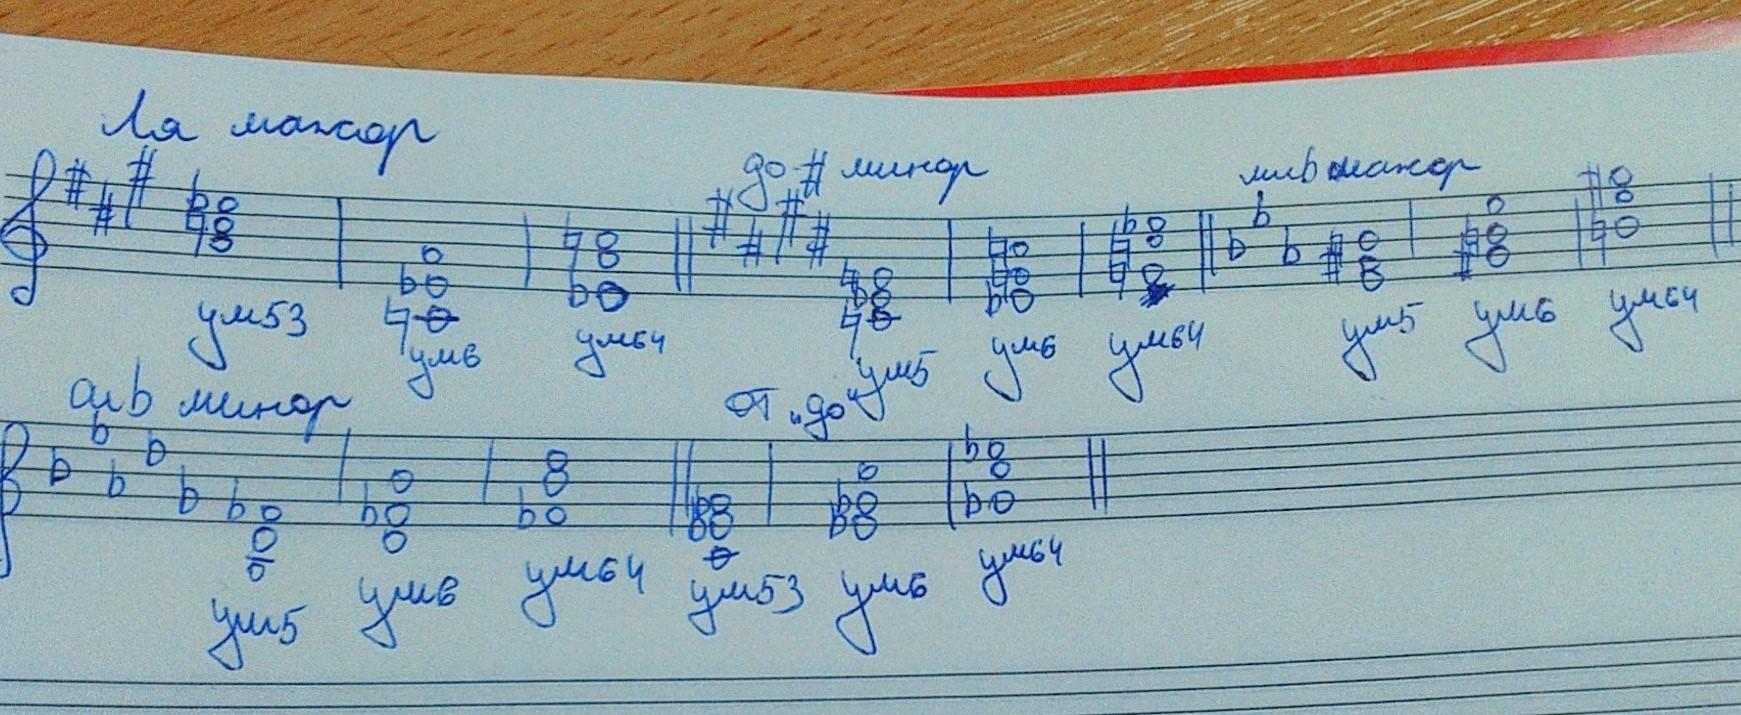 Ля мажор
до # минор
миb мажор
ум53 ум6 ум64 ум5 ум6 ум64 ум5 ум6 ум64
сиb минор
от „до“
ум5 ум6 ум64 ум53 ум6 ум64